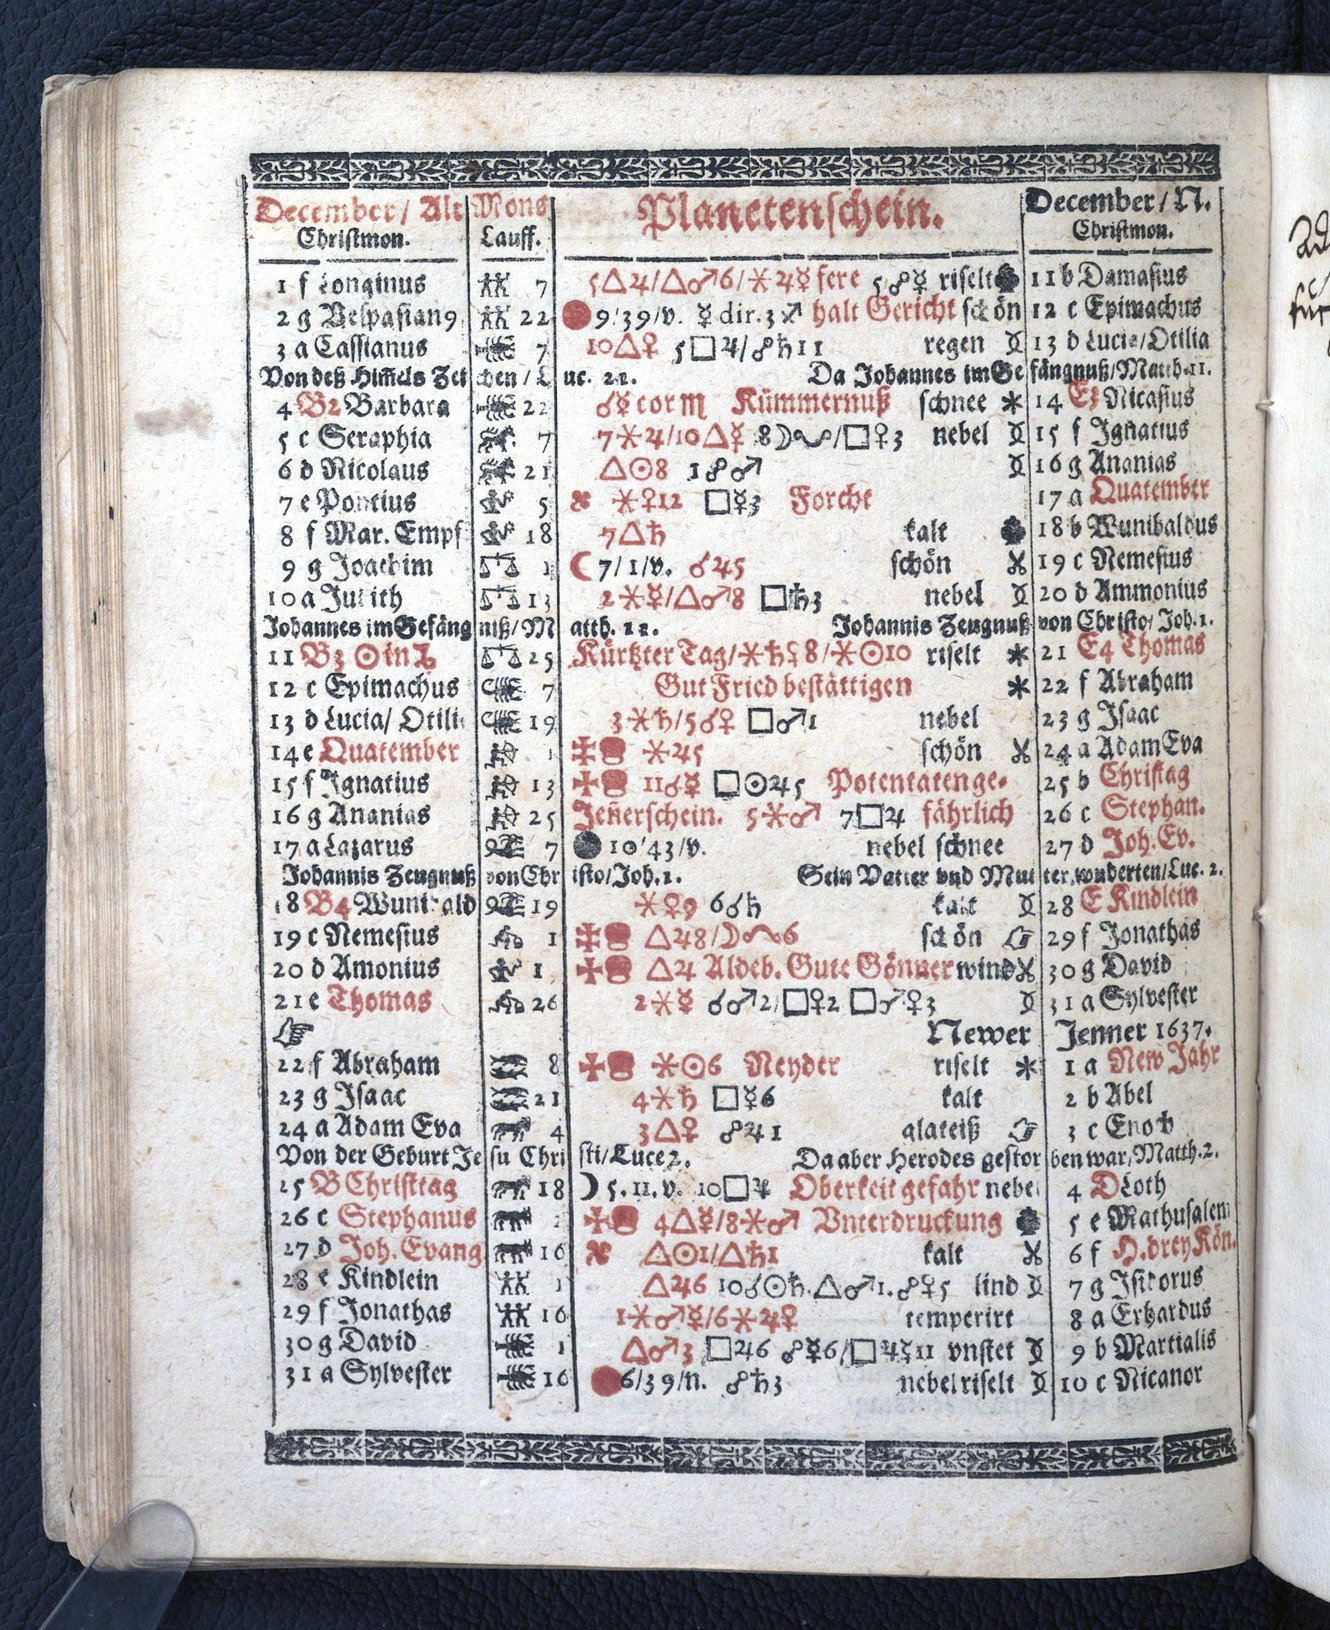 December / Alt Mons Planetenschein. December / N.
Christmon. Lauff. Christmon.
1 f Longinus 7 5△♃/△♂6/⚹♃☿ fere 5☍☿ riselt 11 b Damasius
2 g Vespasian9 22 9/39/v. ☿ dir. 3 ♐ halt Gericht schön 12 c Epimachus
3 a Cassianus 7 10△♀ 5□♃/☍♄11 regen 13 d Lucia/Otilia
Von deß Himels Zeichen / Luc. 21. Da Johannes im Gefängnuß/Matth. 11.
4 B2 Barbara 22 ☌☿ cor ♏ Kümmernuß schnee 14 E3 Nicasius
5 c Seraphia 7 7⚹♃/10△☿ 8☽ /□♀3 nebel 15 f Ignatius
6 d Nicolaus 21 △☉8 1☍♂ 16 g Ananias
7 e Pontius 5 ⚹♀12 □☿3 Forcht 17 a Quatember
8 f Mar. Empf 18 7△♄ kalt 18 b Wunibaldus
9 g Joachim 1 ☾7/1/v. ☌♃5 schön 19 c Nemesius
10 a Judith 13 2⚹☿/△♂8 □♄3 nebel 20 d Ammonius
Johannes im Gefängniß/Matth. 11. Johannis Zeugnuß von Christo/Joh. 1.
11 B3 ☉ in ♑ 25 Kürtzter Tag/⚹♄♀8/⚹☉10 riselt 21 E4 Thomas
12 c Epimachus 7 Gut Fried bestättigen 22 f Abraham
13 d Lucia/ Otili 19 3⚹♄/5☌♀ □♂1 nebel 23 g Isaac
14 e Quatember 1 ⚹♃5 schön 24 a Adam Eva
15 f Ignatius 13 11☌☿ □☉♃5 Potentatenge- 25 b Christag
16 g Ananias 25 Jeñerschein. 5⚹♂ 7□♃ fährlich 26 c Stephan.
17 a Lazarus 7 10/43/v. nebel schnee 27 d Joh. Ev.
Johannis Zeugnuß von Christo/Joh. 1. Sein Vatter vnd Mutter wunderten/Luc. 2.
18 B4 Wunibald 19 ⚹♀9 6☌♄ kalt 28 E Kindlein
19 c Nemesius 1 △♃8/☽ 6 schön 29 f Jonathas
20 d Amonius 1 △♃ Aldeb. Gute Gönner wind 30 g David
21 e Thomas 26 2⚹☿ ☌♂2/□♀2 □♂♀3 31 a Sylvester
Newer Jenner 1637.
22 f Abraham 8 ⚹☉6 Neyder riselt 1 a New Jahr
23 g Isaac 21 4⚹♄ □☿6 kalt 2 b Abel
24 a Adam Eva 4 3△♀ ☍♃1 glateiß 3 c Enoch
Von der Geburt Jesu Christi/Luce 2. Da aber Herodes gestorben war/Matth. 2.
25 B Christtag 18 ☽5. 11. v. 10□♃ Oberkeit gefahr nebel 4 D Loth
26 c Stephanus 4△☿/8⚹♂ Vnterdruckung 5 e Mathusalem
27 d Joh. Evang 16 △☉1/△♄1 kalt 6 f H. drey Kön.
28 e Kindlein 1 △♃6 10☌☉♄. △♂1. ☍♀5 lind 7 g Isidorus
29 f Jonathas 16 1⚹♂☿/6⚹♃♀ temperirt 8 a Erhardus
30 g David 1 △♂3 □♃6 ☍☿6/□♃☿11 vnstet 9 b Martialis
31 a Sylvester 16 6/39/n. ☍♄3 nebel riselt 10 c Nicanor